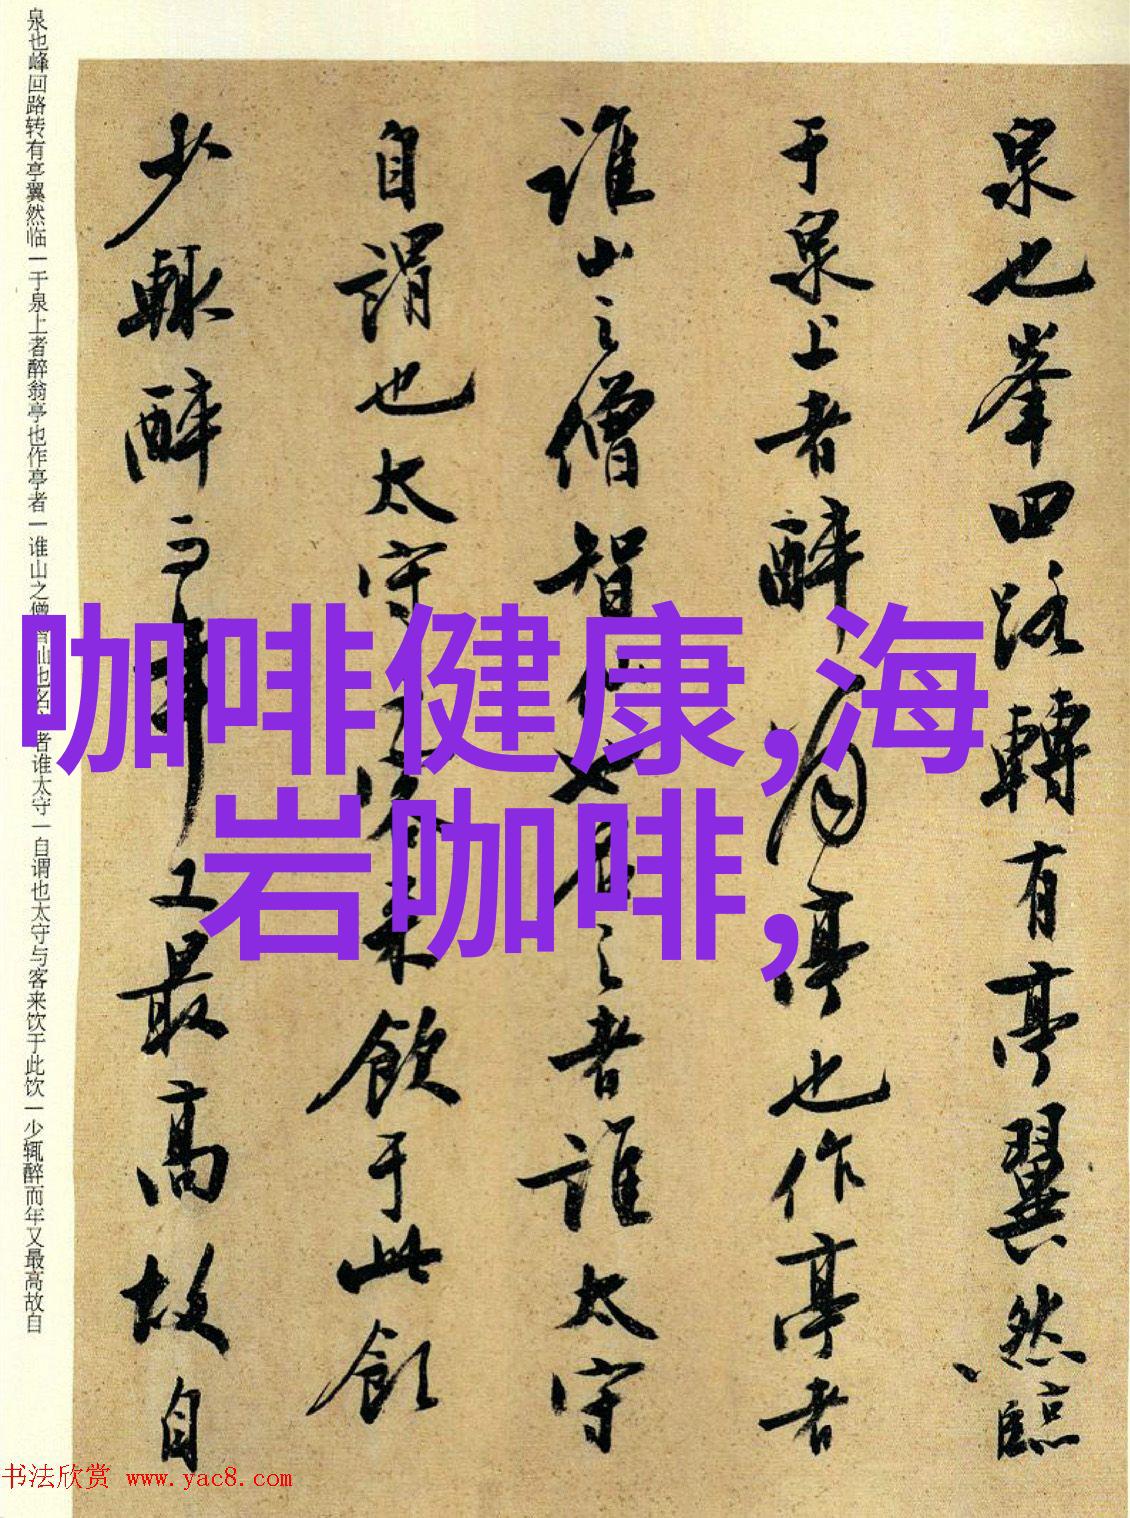 咖啡健康,海
岩咖啡,
泉也峯回路轉有亭翼然臨
于泉上者醉翁亭也作亭者
誰山之僧智仙也名之者誰太守
自謂也太守与客来飲于此飲
少輙醉而年又最高故自
泉也峰回路转有亭翼然临一于泉上者醉翁亭也作亭者一谁山之僧智仙也名之者谁太守一自谓也太守与客来饮于此饮一少辄醉而年又最高故自
书法欣赏 www.yac8.com